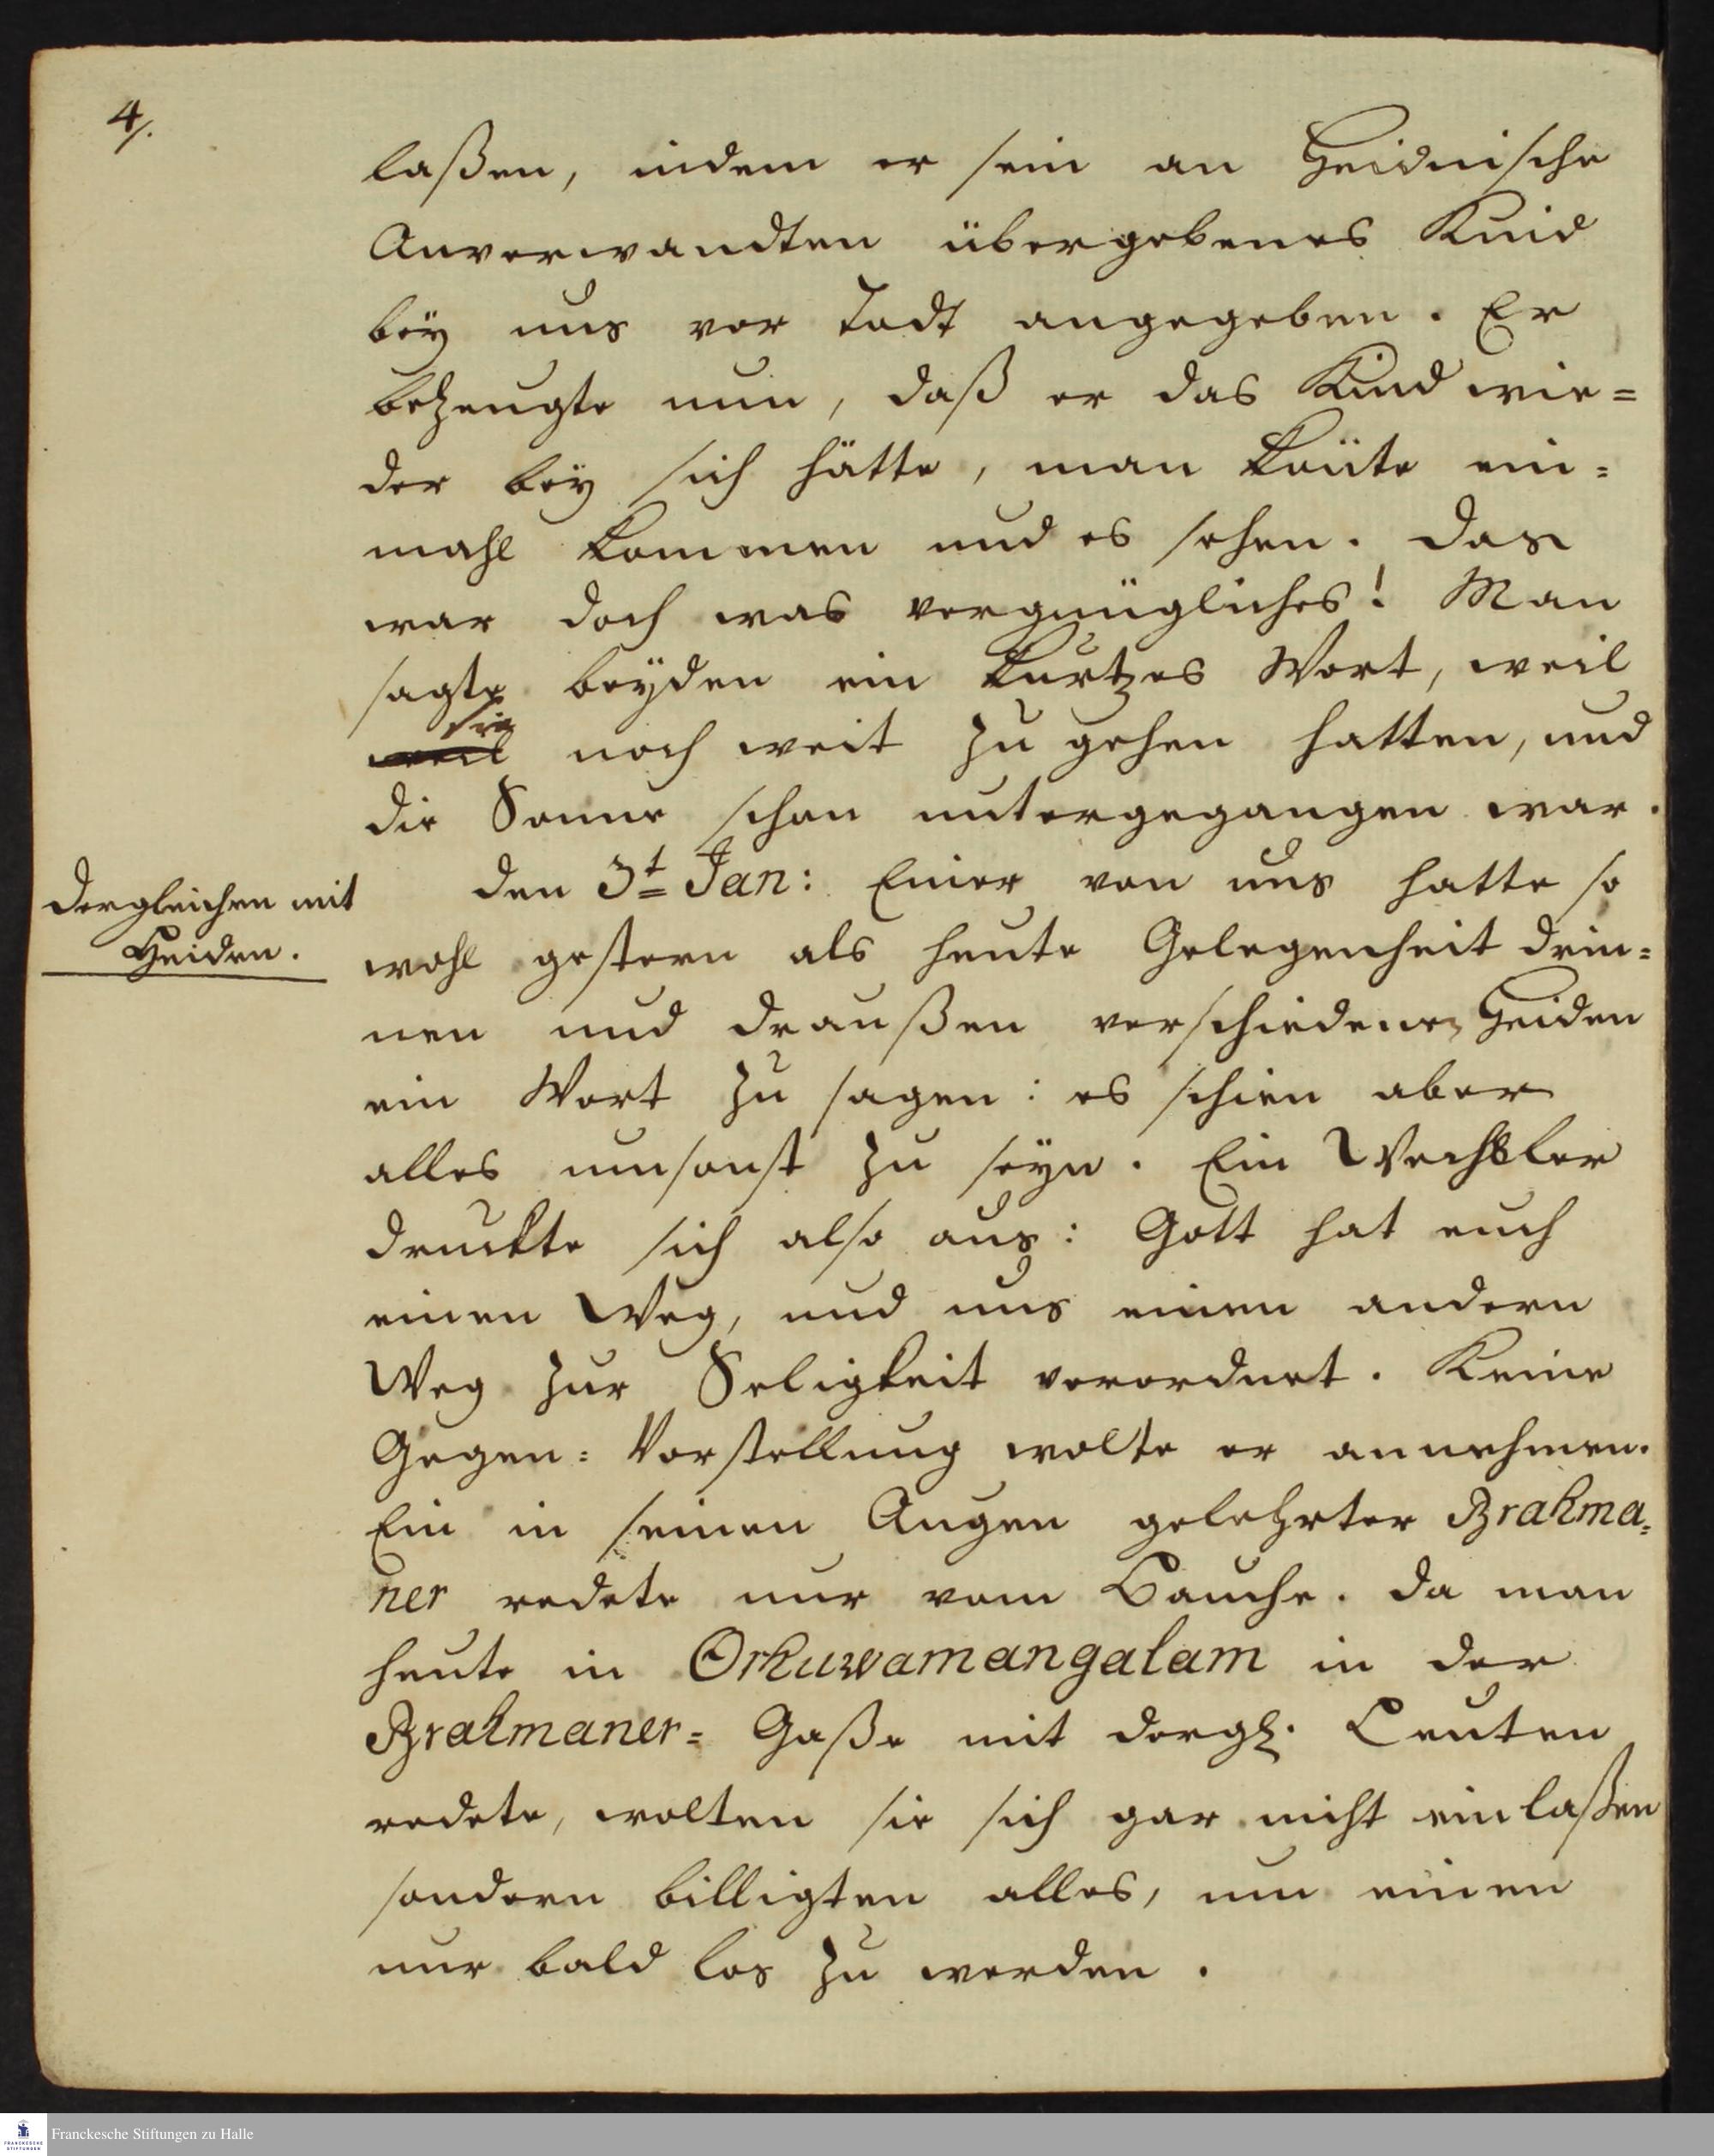 4/.
laßen, indem er sein an Heidnische
Anverwandten übergebenes Kind
bey uns vor todt angegeben. Er
bezeugte nun, daß er das Kind wie=
der bey sich hätte, man könte ein=
mahl kommen und es sehen. Das
war doch was vergnügliches! Man
sagte beÿden ein kurtzes Wort, weil
sie
weil noch weit zu gehen hatten, und
die Sonne schon untergegangen war.
Dergleichen mit
Heiden.
den 3t Jan: Einer von uns hatte so
wohl gestern als heute Gelegenheit drin=
nen und draußen verschiedenen Heiden
ein Wort zu sagen: es schien aber
alles umsonst zu seyn. Ein Wechsler
druckte sich also aus: Gott hat euch
einen Weg, und uns einen andern
Weg zur Seligkeit verordnet. Keine
Gegen=Vorstellung wolte er annehmen.
Ein in seinen Augen gelehrter Brahma=
ner redete nur vom Bauche. Da man
heute in Orkuwamangalam in der
Brahmaner=Gaße mit dergl. Leuten
redete, wolten sie sich gar nicht einlaßen
sondern billigten alles, um einen
nur bald los zu werden.
Franckesche Stiftungen zu Halle
FRANCKESCHE
STIFTUNGEN